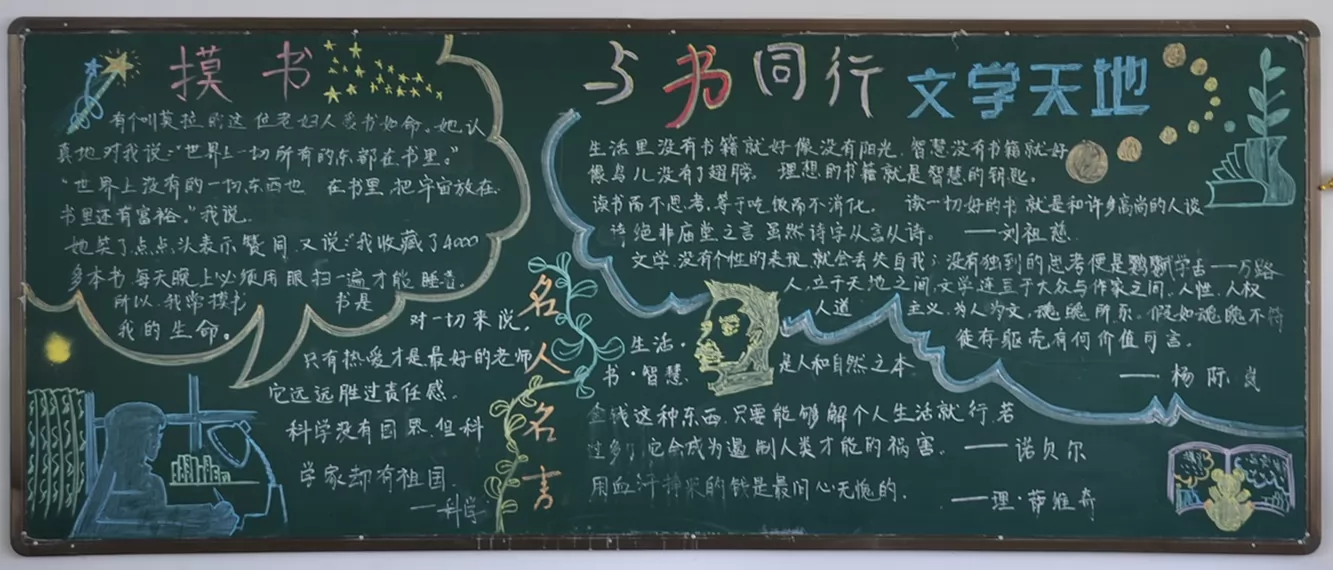 摸书
有个叫莫拉的这位老妇人爱书如命。她认
真地对我说:“世界上一切所有的东部在书里。”
“世界上没有的一切东西也 在书里,把宇宙放在
书里还有富裕。”我说.
她笑了点点头表示赞同.又说:“我收藏了4000
多本书.每天晚上必须用眼扫一遍才能 睡着.
所以.我常摸书 书是
我的生命。
名人名言
对一切来说,
只有热爱才是最好的老师
它远远胜过责任感.
科学没有国界.但科
学家却有祖国.
——科学
与书同行
文学天地
生活里没有书籍就好像没有阳光.智慧没有书籍就好
像鸟儿没有了翅膀。理想的书籍就是智慧的钥匙.
读书而不思考.等于吃饭而不消化. 读一切好的书 就是和许多高尚的人谈
诗绝非庙堂之言 虽然诗字从言从诗。 ——刘祖慈
文学.没有个性的表现.就会丢失自我;没有独到的思考便是鹦鹉学舌——万路
人.立于天地之间.文学 还 于大众与作家之间.人性.人权
人道 主义.为人为文,魂魄所系.假如魂魄不符
徒存躯壳有何价值可言。
——杨际岚
生活·
书·智慧.
是人和自然之本
金钱这种东西.只要能够解个人生活就行.若
过多了它会成为遏制人类才能的祸害。——诺贝尔
用血汗挣来的钱是最问心无愧的.
——理·萨维奇